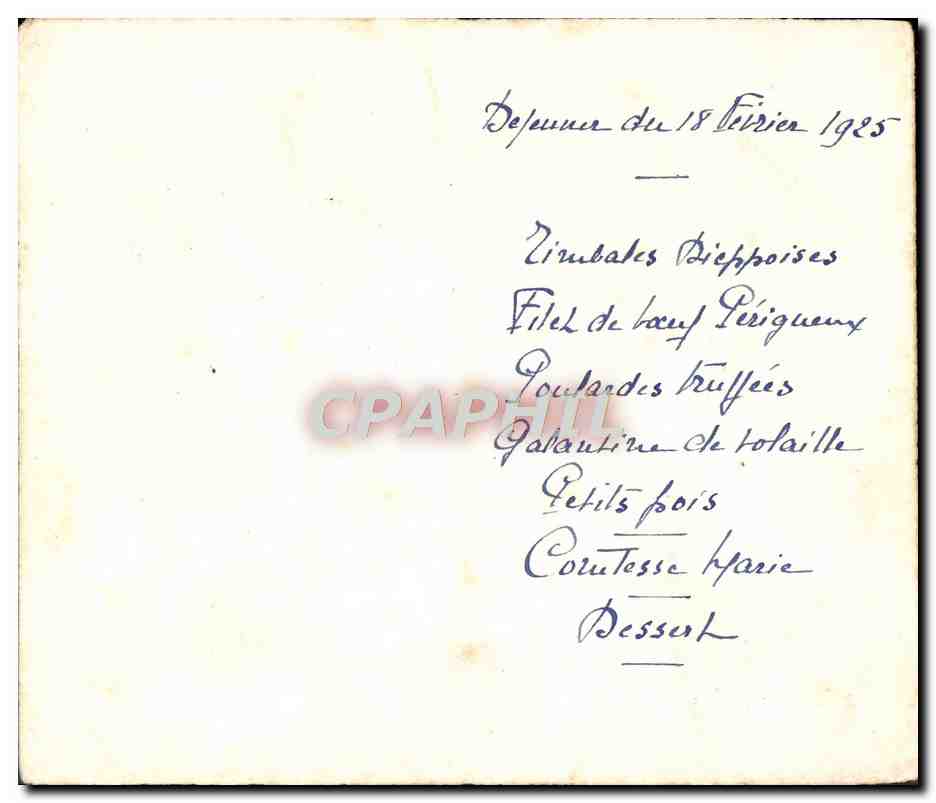 Dejeuner du 18 Février 1925
Timbales Dieppoises
Filet de bœuf Périgueux
Poulardes truffées
CPAPHIL
Galantine de volaille
Petits pois
Comtesse Marie
Dessert